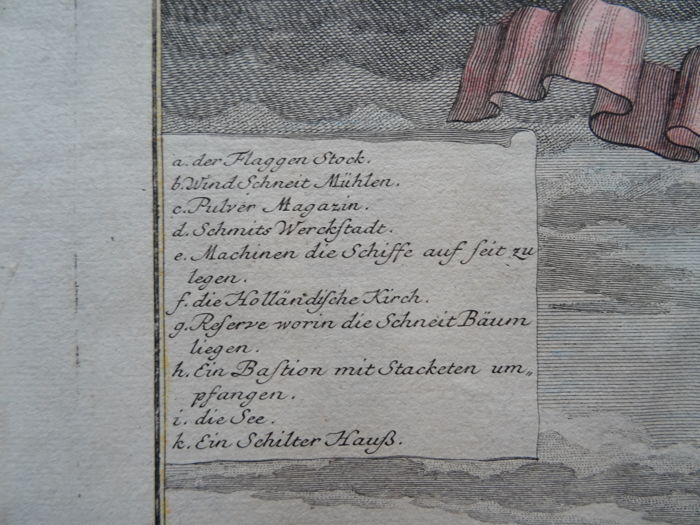 a. der Flaggen Stock.
b. Wind Schneit Mühlen.
c. Pulver Magazin.
d. Schmits Werckstadt.
e. Machinen die Schiffe auf ſeit zu
legen.
f. die Holländiſche Kirch.
g. Reſerve worin die Schneit Bäum
liegen.
h. Ein Baſtion mit Stacketen um„
pfangen.
i. die See.
k. Ein Schilter Hauß.